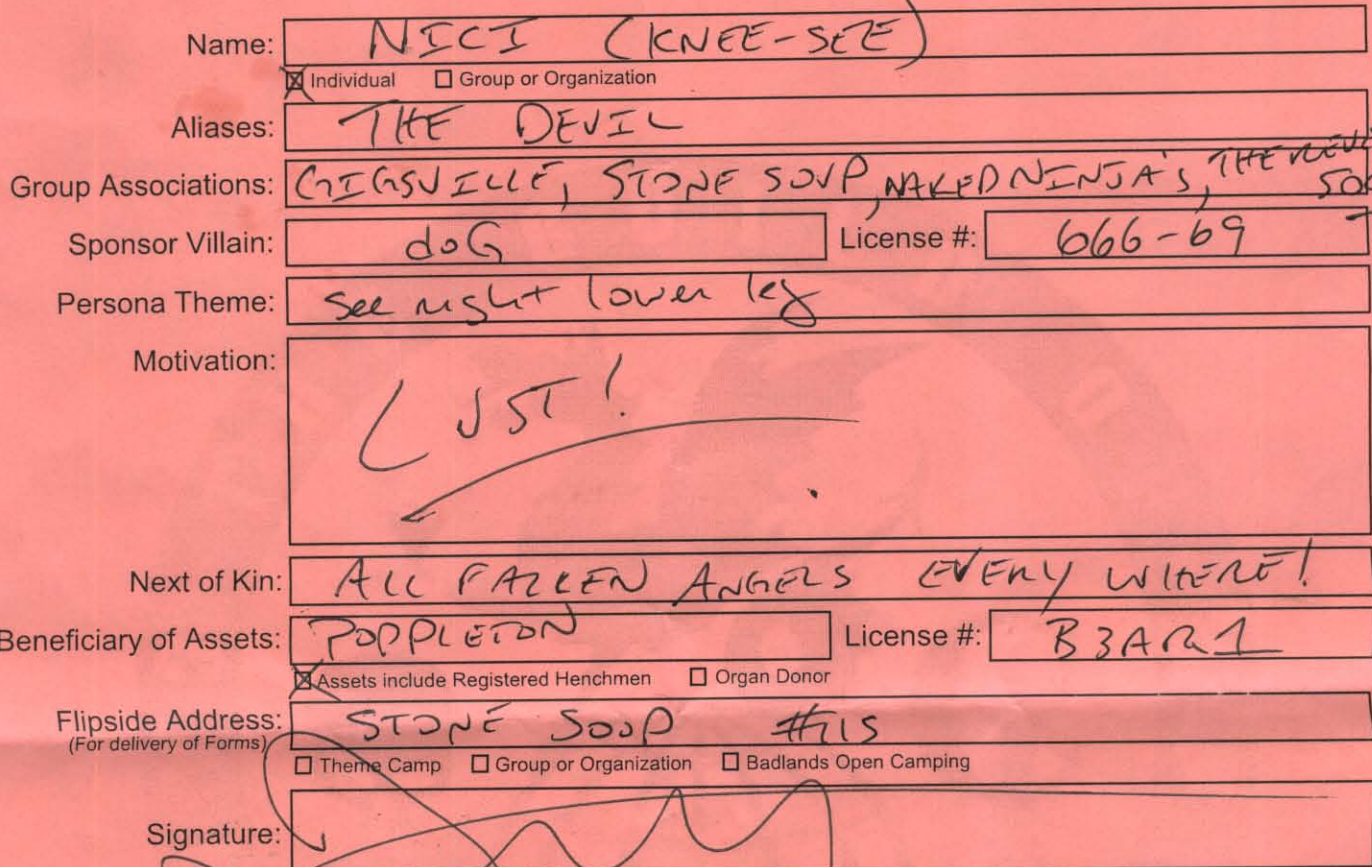 Name: NICI (KNEE-SEE)
☒ Individual ☐ Group or Organization
Aliases: THE DEVIL
Group Associations: GIGSVILLE, STONE SOUP, NAKED NINJA'S, THE
Sponsor Villain: doG License #: 666-69
Persona Theme: See right lower leg
Motivation: LUST!
Next of Kin: ALL FALLEN ANGELS EVERY WHERE!
Beneficiary of Assets: POPPLETON License #: B3AR1
☒ Assets include Registered Henchmen ☐ Organ Donor
Flipside Address: STONE SOUP
(For delivery of Forms)
☐ Theme Camp ☐ Group or Organization ☐ Badlands Open Camping
Signature: